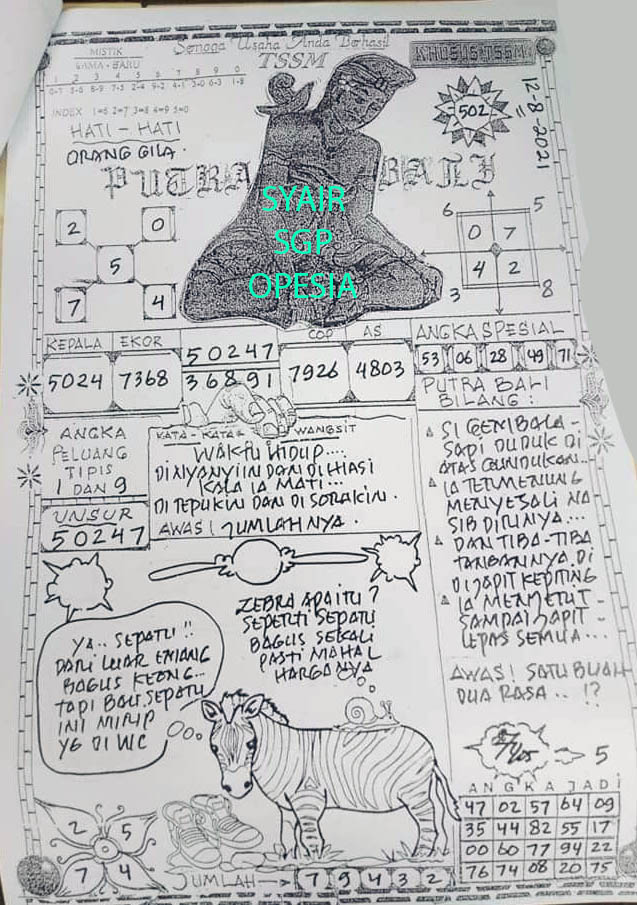 Semoga Usaha Anda Berhasil
TSSM
KHUSUS TSSM
MISTIK
LAMA - BARU
1 2 3 4 5 6 7 8 9 0
INDEX 1=6 2=7 3=8 4=9 5=0
HATI - HATI
ORANG GILA.
502
12-8-2021
PUTRA BALI
SYAIR
SGP
OPESIA
2 0
5
7 4
6 5
0 7
4 2
3 8
KEPALA EKOR
5024 7368
50247
36891
COP AS
7926 4803
ANGKA SPESIAL
53 06 28 49 71
PUTRA BALI
BILANG :
SI GEMBALA -
SAPI DUDUK DI
ATAS GUNDUKAN...
IA TERMENUNG
MENYESALI NA-
SIB DIRINYA...
DAN TIBA-TIBA
DI
DIJAPIT KEPITING
IA
SAMPAI JAPIT -
LEPAS SEMUA...
AWAS! SATU BUAH
DUA RASA .. !?
ANGKA
PELUANG
TIPIS
1 DAN 9
UNSUR
50247
KATA - KATA WANGSIT
WAKTU HIDUP....
DINYANYIIN DAN DI HIASI
KALA IA MATI...
DITEPUKIN DAN DI SORAKIN.
AWAS! JUMLAHNYA.
ZEBRA APA ITU?
SEPERTI SEPATU
BAGUS SEKALI
PASTI MAHAL
HARGANYA
YA.. SEPATU !!
DARI LUAR EMANG
BAGUS KEONG...
TAPI BAU SEPATU
INI MIRIP
YG DI WC
5
ANGKA JADI
47 02 57 64 09
35 44 82 55 17
00 60 77 94 22
76 74 08 20 75
2 5
7 4
JUMLAH 7 9 4 3 2